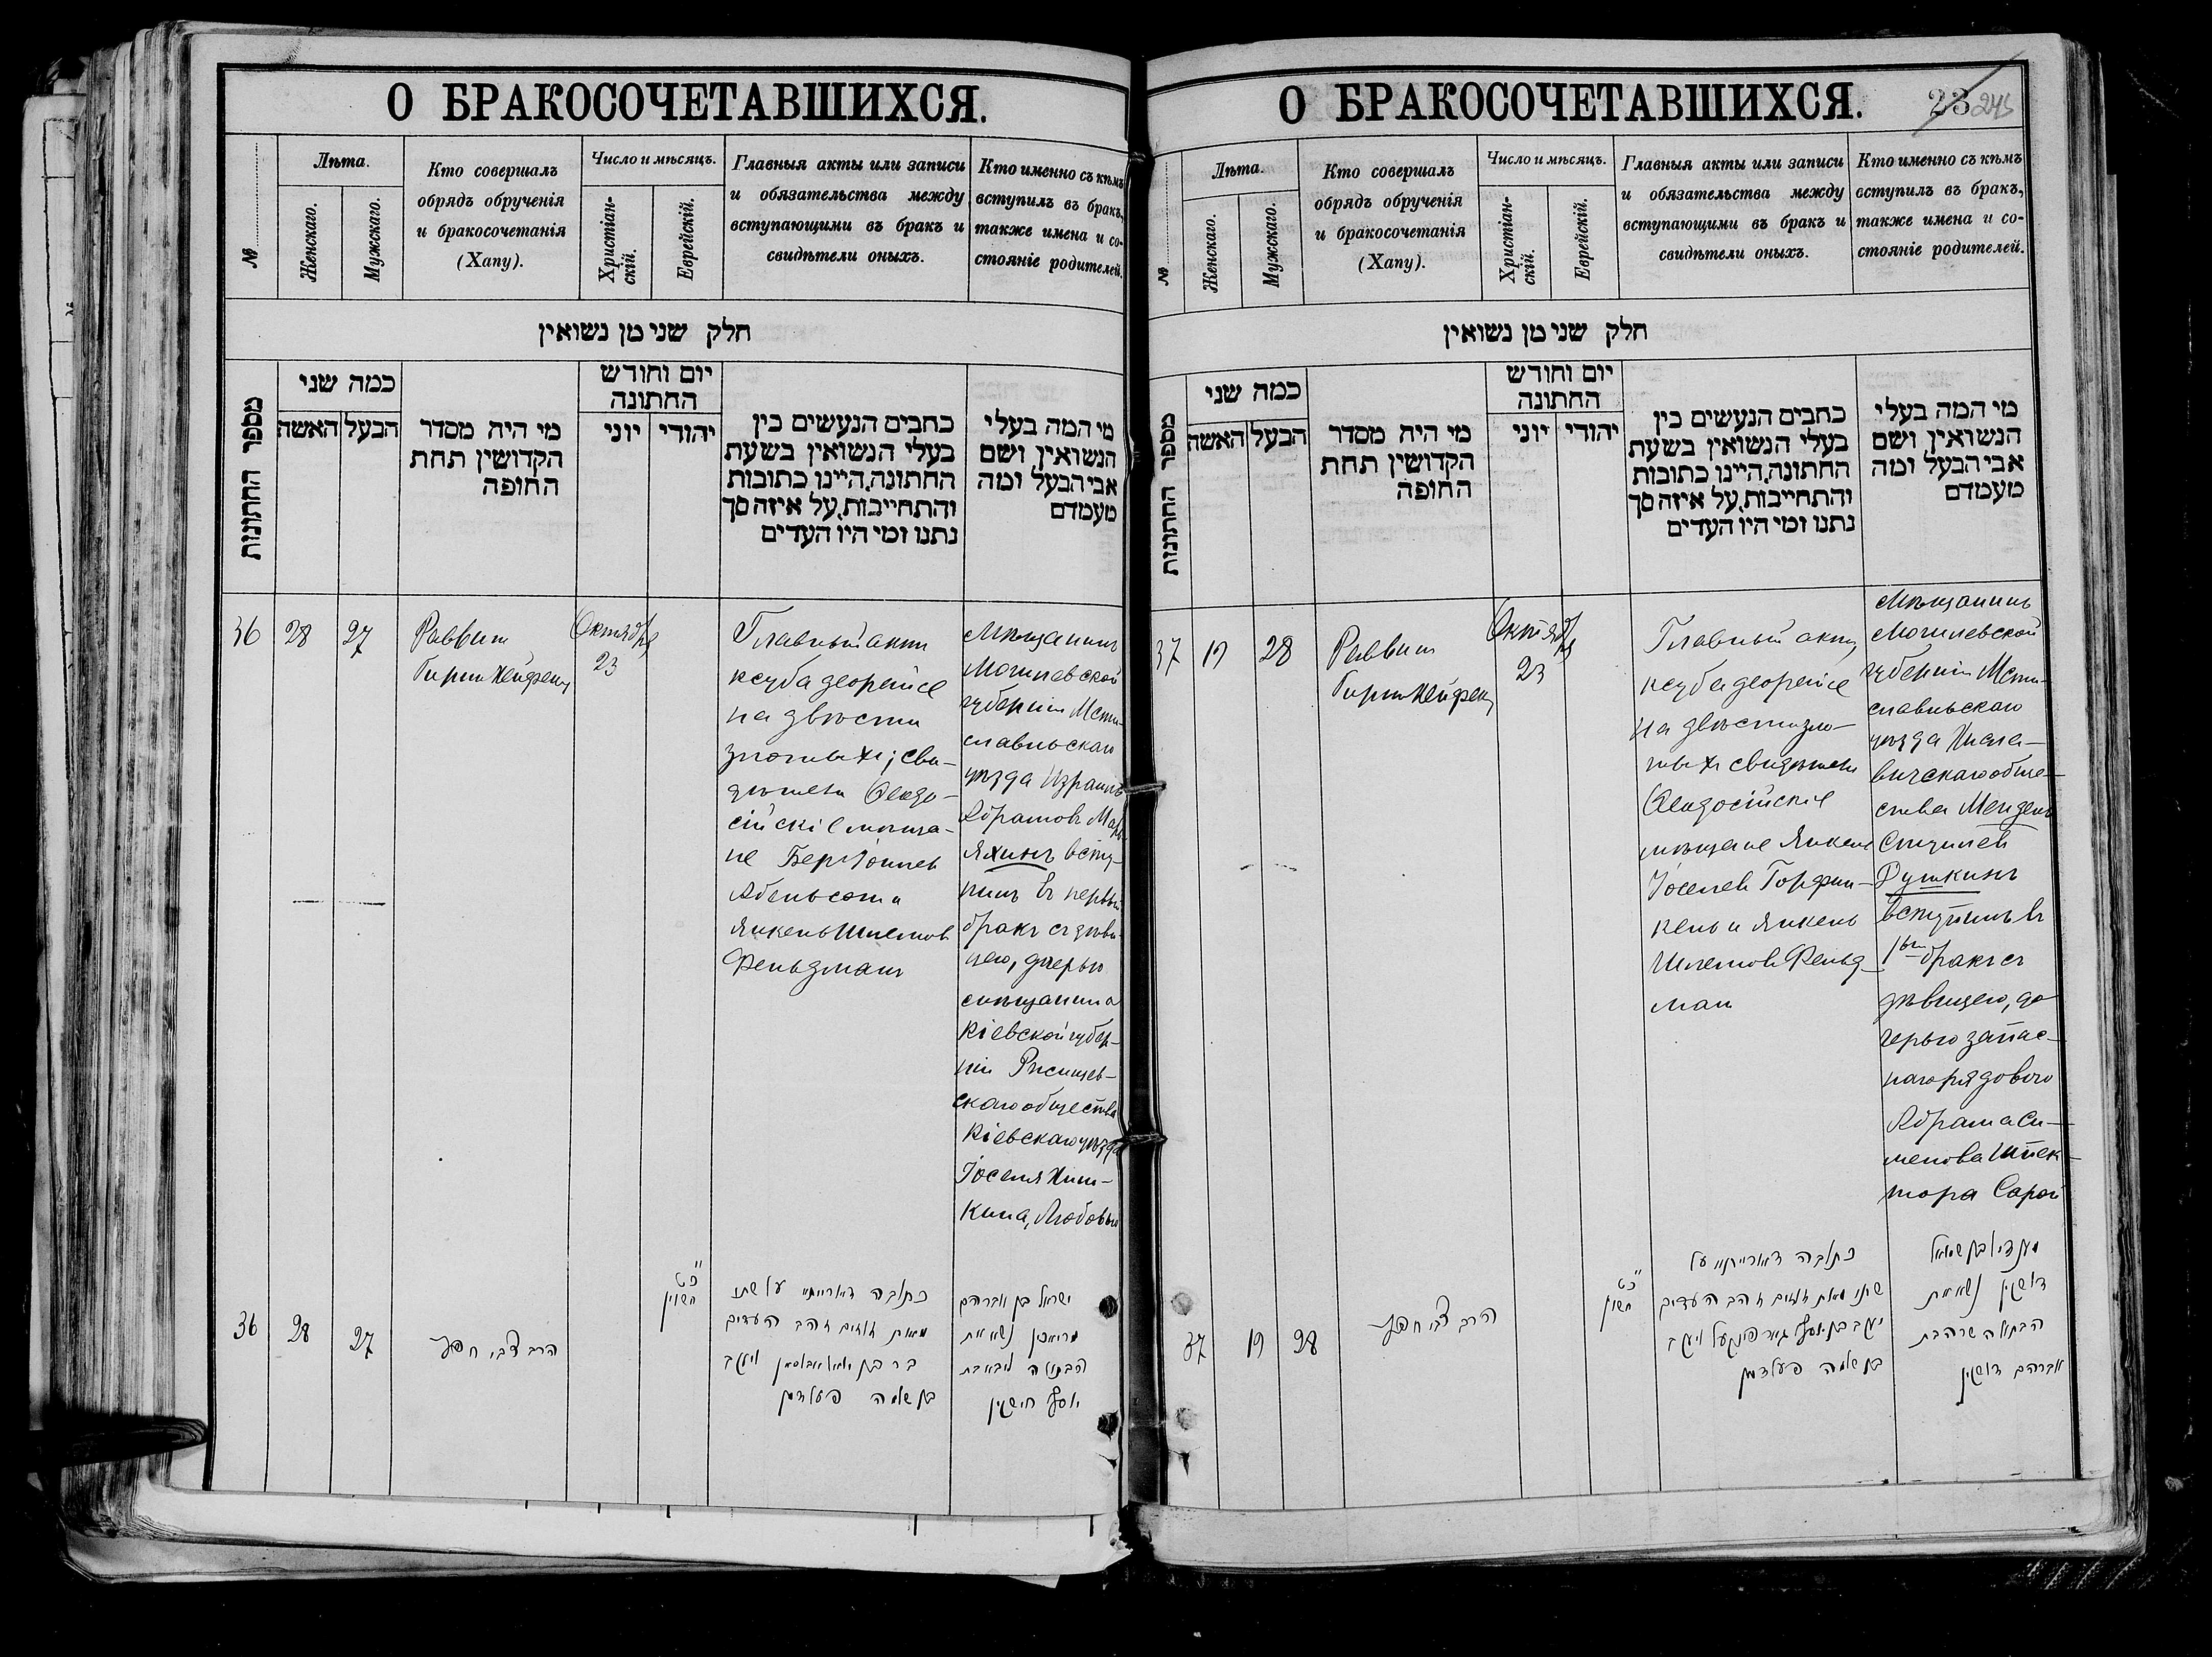 О БРАКОСОЧЕТАВШИХСЯ.
№
Лѣта.
Женскаго.
Мужскаго.
Кто совершалъ
обрядъ обрученія
и бракосочетанія
(Хапу).
Число и мѣсяцъ.
Христіан-
скій.
Еврейскій.
Главныя акты или записи
и обязательства между
вступающими въ бракъ и
свидѣтели оныхъ.
Кто именно съ кѣмъ
вступилъ въ бракъ,
также имена и со-
стояніе родителей.
חלק שני מן נשואין
מספר החתונות
כמה שני
האשה
הבעל
מי היה מסדר
הקדושין תחת
החופה
יום וחודש
החתונה
יוני
יהודי
כתבים הנעשים בין
בעלי הנשואין בשעת
החתונה, היינו כתובות
והתחייבות, על איזה סך
נתנו ומי היו העדים
מי המה בעלי
הנשואין ושם
אבי הבעל ומה
מעמדם
36
28
27
Раввин
Гирш Хейфец
Октября
23
Главный акт
ксуба деорейсе
на двѣсти
злотых; сви-
дѣтели Ѳеодо-
сійскіе мѣща-
не Бер
Абельсон и
Янкель Шлемов
Фельдман
Мѣщанинъ
Могилевской
губерніи Мсти-
славльскаго
уѣзда Израиль
Абрамовъ Марь-
яхинъ всту-
пилъ въ первый
бракъ съ дѣви-
цею, дочерью
мѣщанина
Кіевской губер-
ніи Ржищев-
скаго общества
Кіевскаго уѣзда
Іоселя Хиш-
кина, Любовью
36
28
27
הרב צבי חפץ
כט
חשון
כתובה דאורייתא על שתי
מאות זוזים זהב העדים
בר בן אבלסמן ויעקב
בן שלמה פעלדמן
ישראל בן אברהם
מריאכין נשא את
הבתולה ליבא בת
יוסף חישקין
О БРАКОСОЧЕТАВШИХСЯ.
23 245
№
Лѣта.
Женскаго.
Мужскаго.
Кто совершалъ
обрядъ обрученія
и бракосочетанія
(Хапу).
Число и мѣсяцъ.
Христіан-
скій.
Еврейскій.
Главныя акты или записи
и обязательства между
вступающими въ бракъ и
свидѣтели оныхъ.
Кто именно съ кѣмъ
вступилъ въ бракъ,
также имена и со-
стояніе родителей.
חלק שני מן נשואין
מספר החתונות
כמה שני
האשה
הבעל
מי היה מסדר
הקדושין תחת
החופה
יום וחודש
החתונה
יוני
יהודי
כתבים הנעשים בין
בעלי הנשואין בשעת
החתונה, היינו כתובות
והתחייבות, על איזה סך
נתנו ומי היו העדים
מי המה בעלי
הנשואין ושם
אבי הבעל ומה
מעמדם
37
19
28
Раввин
Гирш Хейфец
Октября
23
Главный акт
ксуба деорейсе
на двѣсти зло-
тых свидѣтели
Ѳеодосійскіе
мѣщане Янкель
Іоселев Горфин-
кель и Янкель
Шлемов Фельд-
ман
Мѣщанинъ
Могилевской
губерніи Мсти-
славльскаго
уѣзда Хисла-
вичскаго обще-
ства Мендель
Рушкинъ
вступилъ въ
1ый бракъ съ
дѣвицею, до-
черью запас-
наго рядового
Абрама Си-
менова Шпек-
тора Сарой
37
19
28
הרב צבי חפץ
כט
חשון
כתובה דאורייתא על
שתי מאות זוזים זהב העדים
יעקב בן יוסף גורפינקעל ויעקב
בן שלמה פעלדמן
מענדיל בן שמואל
נשא את
הבתולה שרה בת
אברהם